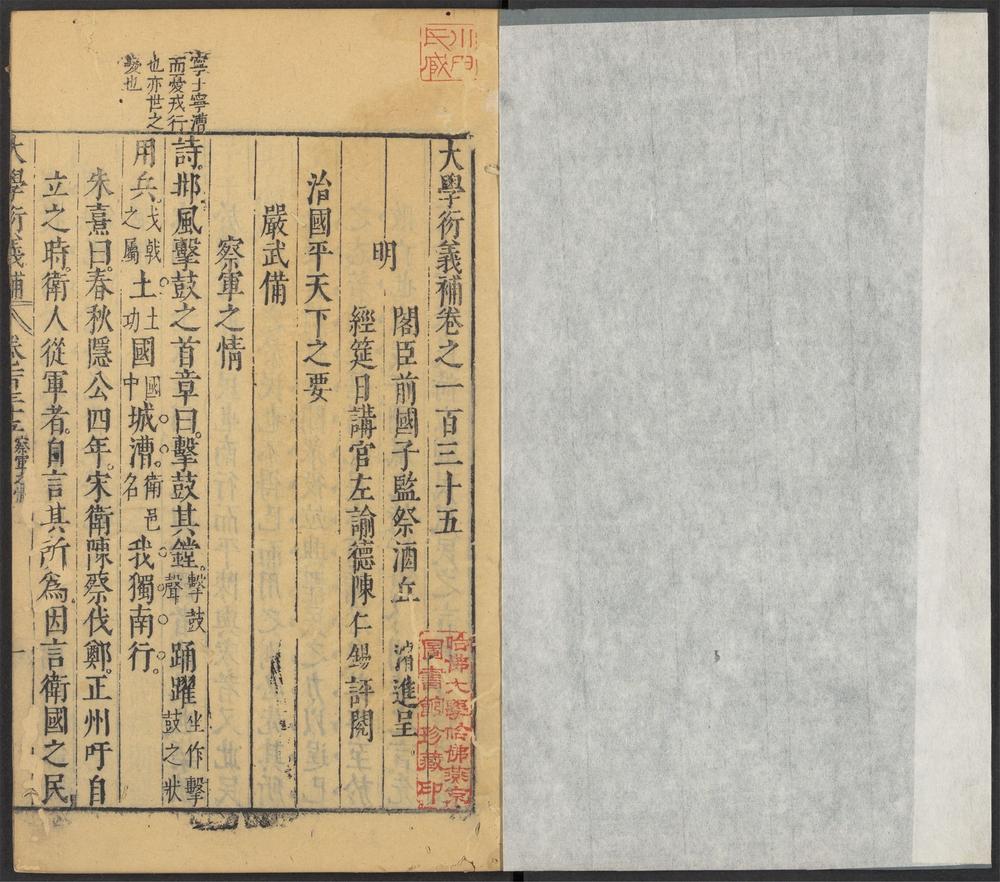 大學衍義補卷之一百三十五
明
閣臣前國子監祭酒丘濬進呈
經筵日講官左諭德陳仁錫評閱
治國平天下之要
嚴武備
察軍之情
寧土寧漕
而戎行
也亦世之
也
詩邶風擊鼓之首章曰擊鼓其鏜。擊鼓聲踊躍坐作擊鼓之狀
用兵。戈戟之屬土土功國國中城漕衛邑名我獨南行。
朱熹曰。春秋隱公四年。宋衛陳蔡伐鄭。正州吁自
立之時。衛人從軍者。自言其所為。因言衛國之民
大學衍義補 察軍之情 一
哈佛大學哈佛燕京
圖書館珍藏印